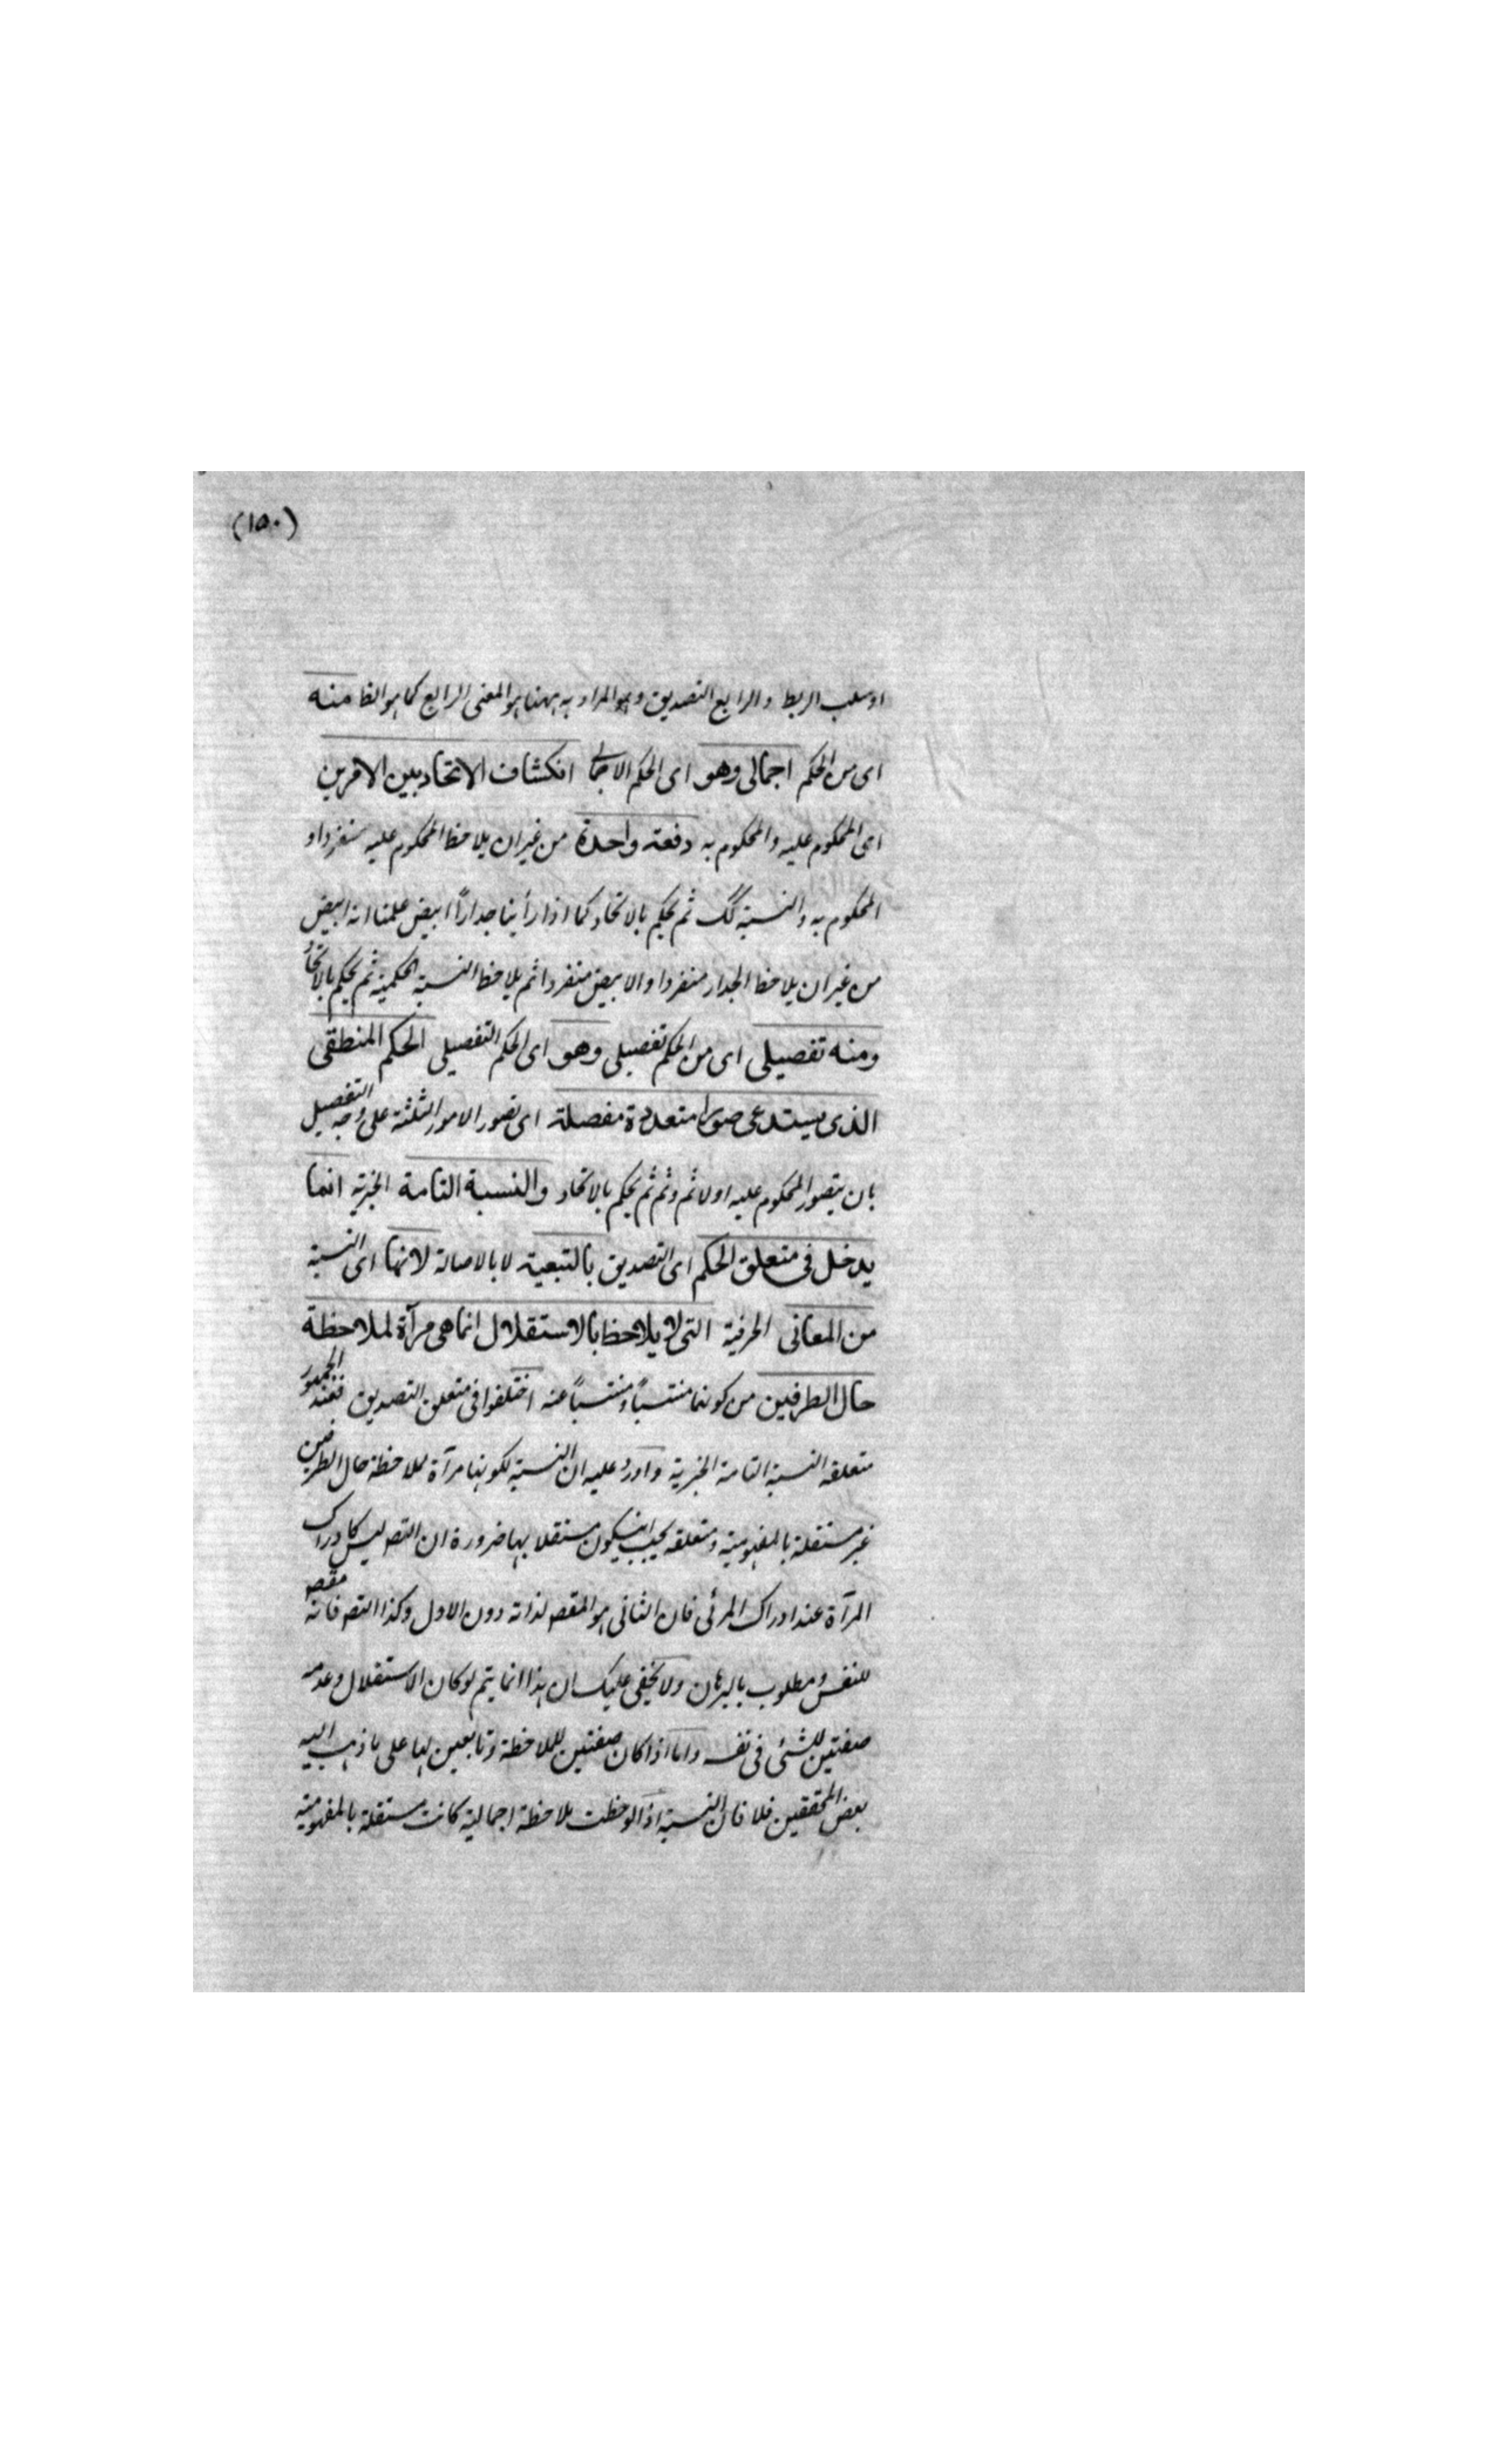 (١٥٠)
او سلب الربط والرابع التصديق وهو المراد به ههنا هو المعنى الرابع كما هو الظا منه
اى من الحكم اجمالى وهو اى الحكم الاجمالى انكشاف الاتحاد بين الامرين
اى المحكوم عليه والمحكوم به دفعة واحدة من غير ان يلاحظ المحكوم عليه منفردا و
المحكوم به والنسبة كك ثم يحكم بالاتحاد كما اذا رأينا جداراً ابيض علمنا انه ابيض
من غير ان يلاحظ الجدار منفردا والابيض منفردا ثم يلاحظ النسبة الحكمية ثم يحكم بالاتحاد
ومنه تفصيلى اى من الحكم تفصيلى وهو اى الحكم التفصيلى الحكم المنطقى
الذى يستدعى صورا متعددة مفصلة اى تصور الامور الثلثة على وجه التفصيل
بان يتصور المحكوم عليه اولا ثم وثم ثم يحكم بالاتحاد والنسبة التامة الخبرية انما
يدخل فى متعلق الحكم اى التصديق بالتبعية لا بالاصالة لانها اى النسبة
من المعانى الحرفية التى لا يلاحظ بالاستقلال انما هى مرآة لملاحظة
حال الطرفين من كونهما منتسباً ومنتسباً عنه اختلفوا فى متعلق التصديق فعند الجمهور
متعلقه النسبة التامة الخبرية واورد عليه ان النسبة لكونها مرآة لملاحظة حال الطرفين
غير مستقلة بالمفهومية ومتعلقه يجب ان يكون مستقلا بها ضرورة ان التصـ ليس كادراك
المرآة عند ادراك المرئى فان الثانى هو المقصـ لذاته دون الاول وكذا التصـ فانه مقصـ
للنفس ومطلوب بالبرهان ولا يخفى عليك ان هذا انما يتم لو كان الاستقلال وعدمه
صفتين للشئ فى نفسه واما اذا كان صفتين للملاحظة وتابعين لها على ما ذهب اليه
بعض المحققين فلا فان النسبة اذا لوحظت ملاحظة اجمالية كانت مستقلة بالمفهومية